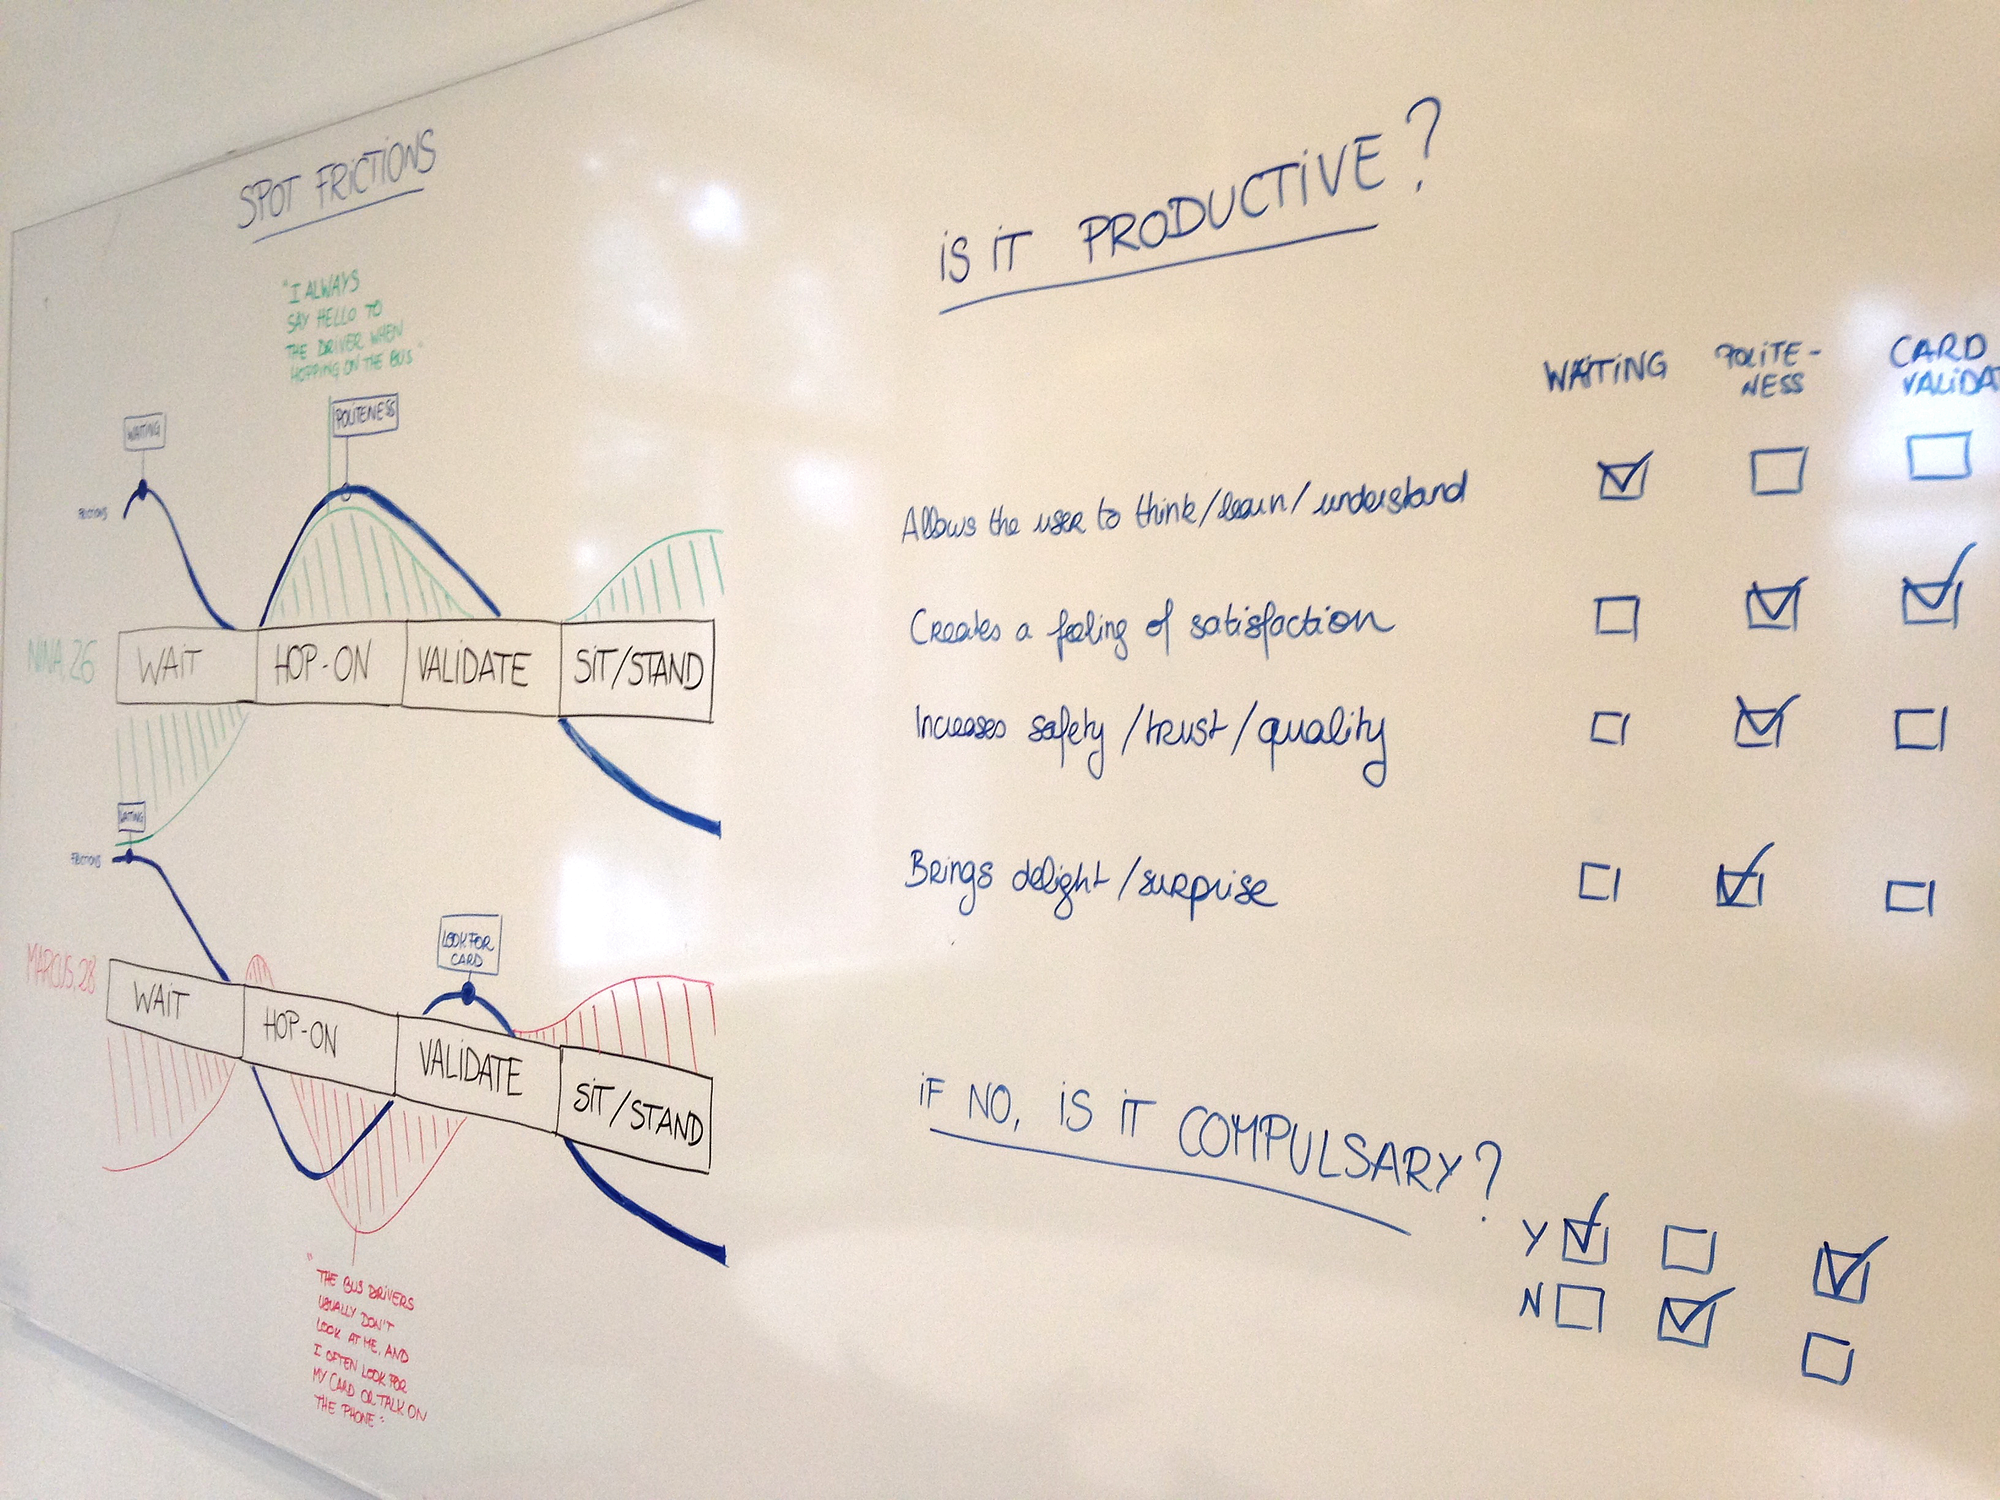 SPOT FRICTIONS
"I ALWAYS
SAY HELLO TO
THE DRIVER WHEN
HOPPING ON THE BUS"
WAITING
POLITENESS
FRICTIONS
NINA, 26
WAIT
HOP-ON
VALIDATE
SIT/STAND
WAITING
FRICTIONS
LOOK FOR
CARD
MARCUS, 28
WAIT
HOP-ON
VALIDATE
SIT/STAND
"THE BUS DRIVERS
USUALLY DON'T
LOOK AT ME, AND
I OFTEN LOOK FOR
MY CARD OR TALK ON
THE PHONE"
IS IT PRODUCTIVE?
WAITING
POLITE-
NESS
CARD
VALIDAT
Allows the user to think/learn/understand
Creates a feeling of satisfaction
Increases safety/trust/quality
Brings delight/surprise
IF NO, IS IT COMPULSARY?
Y
N